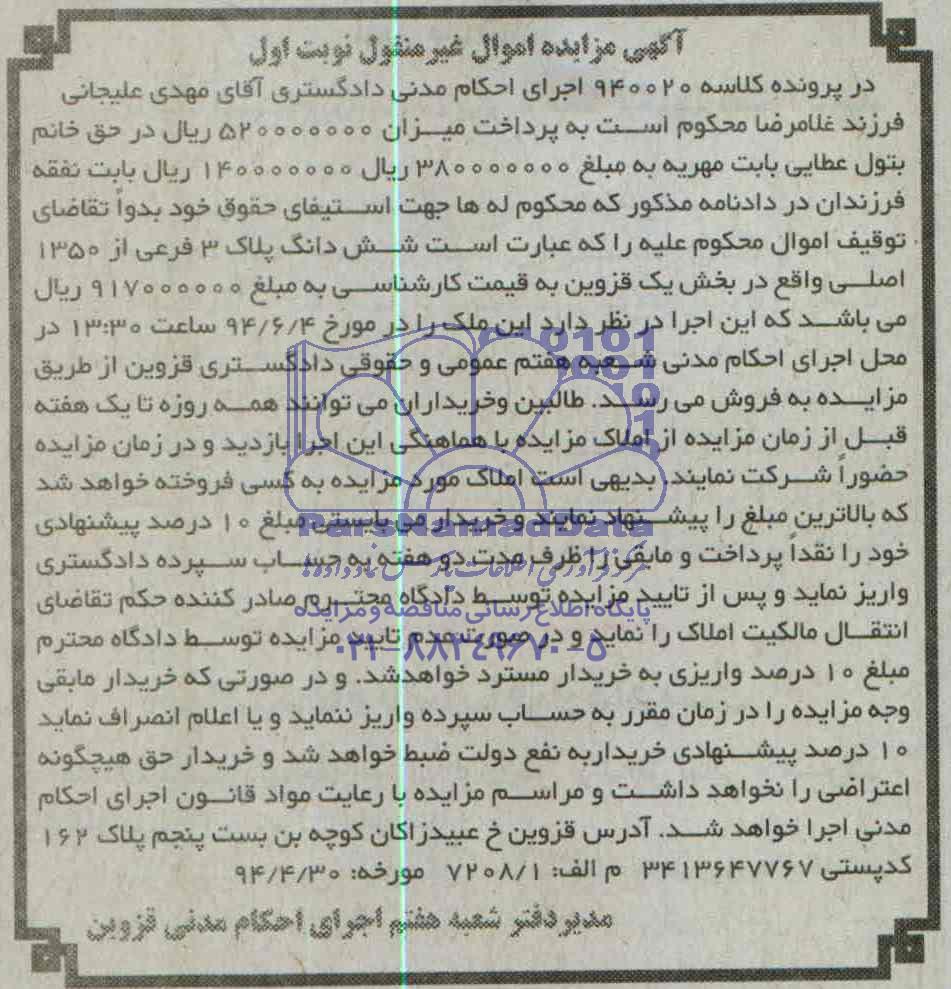 آگهی مزایده اموال غیرمنقول نوبت اول
در پرونده کلاسه ۹۴۰۰۲۰ اجرای احکام مدنی دادگستری آقای مهدی علیجانی
فرزند غلامرضا محکوم است به پرداخت میزان ۵۲۰۰۰۰۰۰۰ ریال در حق خانم
بتول عطایی بابت مهریه به مبلغ ۳۸۰۰۰۰۰۰۰ ریال ۱۴۰۰۰۰۰۰۰ ریال بابت نفقه
فرزندان در دادنامه مذکور که محکوم له ها جهت استیفای حقوق خود بدواً تقاضای
توقیف اموال محکوم علیه را که عبارت است شش دانگ پلاک ۳ فرعی از ۱۳۵۰
اصلی واقع در بخش یک قزوین به قیمت کارشناسی به مبلغ ۹۱۷۰۰۰۰۰۰ ریال
می باشد که این اجرا در نظر دارد این ملک را در مورخ ۹۴/۶/۴ ساعت ۱۳:۳۰ در
محل اجرای احکام مدنی شعبه هفتم عمومی و حقوقی دادگستری قزوین از طریق
مزایده به فروش می رسد. طالبین وخریداران می توانند همه روزه تا یک هفته
قبل از زمان مزایده از املاک مزایده با هماهنگی این اجرا بازدید و در زمان مزایده
حضوراً شرکت نمایند. بدیهی است املاک مورد مزایده به کسی فروخته خواهد شد
که بالاترین مبلغ را پیشنهاد نمایند و خریدار می بایستی مبلغ ۱۰ درصد پیشنهادی
خود را نقداً پرداخت و مابقی را ظرف مدت دو هفته به حساب سپرده دادگستری
واریز نماید و پس از تایید مزایده توسط دادگاه محترم صادر کننده حکم تقاضای
انتقال مالکیت املاک را نماید و در صورت عدم تایید مزایده توسط دادگاه محترم
مبلغ ۱۰ درصد واریزی به خریدار مسترد خواهدشد. و در صورتی که خریدار مابقی
وجه مزایده را در زمان مقرر به حساب سپرده واریز ننماید و یا اعلام انصراف نماید
۱۰ درصد پیشنهادی خریداربه نفع دولت ضبط خواهد شد و خریدار حق هیچگونه
اعتراضی را نخواهد داشت و مراسم مزایده با رعایت مواد قانون اجرای احکام
مدنی اجرا خواهد شد. آدرس قزوین خ عبیدزاکان کوچه بن بست پنجم پلاک ۱۶۲
کدپستی ۳۴۱۳۶۴۷۷۶۷ م الف: ۷۲۰۸/۱ مورخه: ۹۴/۴/۳۰
مدیر دفتر شعبه هفتم اجرای احکام مدنی قزوین
ParsNamadData
پایگاه اطلاع رسانی مناقصه و مزایده
۰۲۱-۸۸۳۴۹۶۷۰-۵